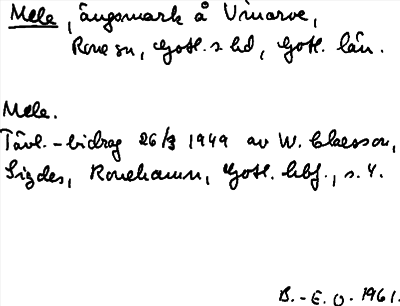 Mele, ängsmark å Vinarve,
Rone sn, Gotl. s hd, Gotl. län.
Mele.
Tävl.-bidrag 26/3 1949 av W. Claesson,
Sigdes, Ronehamn, Gotl. hbf., s. 4.
B.-E. O. 1961.